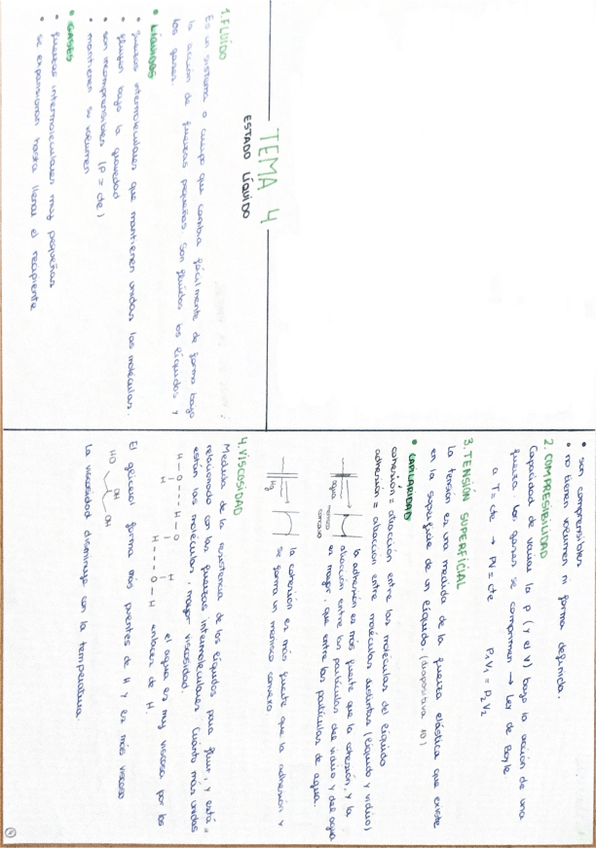 TEMA 4
ESTADO LÍQUIDO
1. FLUÍDO
Es un sistema o cuerpo que cambia fácilmente de forma bajo
la acción de fuerzas pequeñas. Son fluídos los líquidos y
los gases.
• LÍQUIDOS
• fuerzas intermoleculares que mantienen unidas las moléculas.
• fluyen bajo la gravedad
• son incomprensibles (P = cte)
• mantienen su volumen
• GASES
• fuerzas intermoleculares muy pequeñas
• se expansionan hasta llenar el recipiente
• son comprensibles
• no tienen volumen ni forma definida.
2. COMPRESIBILIDAD
Capacidad de variar la P (y el V) bajo la acción de una
fuerza. Los gases se comprimen → Ley de Boyle
a T = cte → PV = cte P₁V₁ = P₂V₂
3. TENSIÓN SUPERFICIAL
la tensión es una medida de la fuerza elástica que existe
en la superficie de un líquido. (diapositiva 10)
• CAPILARIDAD
cohesión = atracción entre las moléculas de líquido
adhesión = atracción entre moléculas distintas (líquido y vidrio)
la adhesión es más fuerte que la cohesión, y la
atracción entre las partículas del vidrio y del agua
es mayor, que entre las partículas de agua.
agua
menisco
cóncavo
la cohesión es más fuerte que la adhesión y
se forma un menisco convexo.
Hg
4. VISCOSIDAD
Medida de la resistencia de los líquidos para fluir, y está
relacionado con las fuerzas intermoleculares. Cuanto más unidas
están las moléculas, mayor viscosidad.
H - O ···· H - O
H
H
H ···· O - H
el agua es muy viscosa por los
enlaces de H.
El glicerol forma más puentes de H y es más viscoso
HO
OH
OH
La viscosidad disminuye con la temperatura.